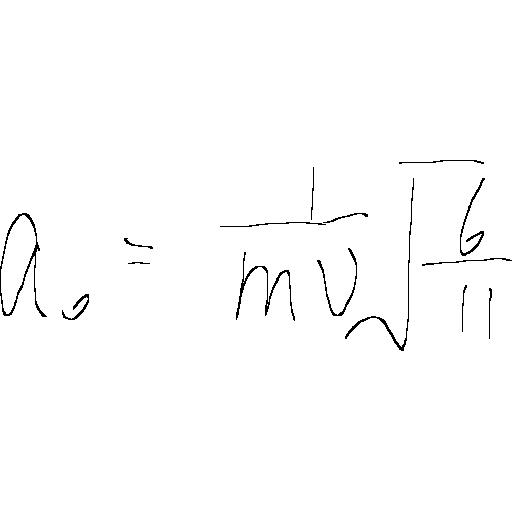 a_0 = \frac{1}{mv} \sqrt{\frac{6}{11}}